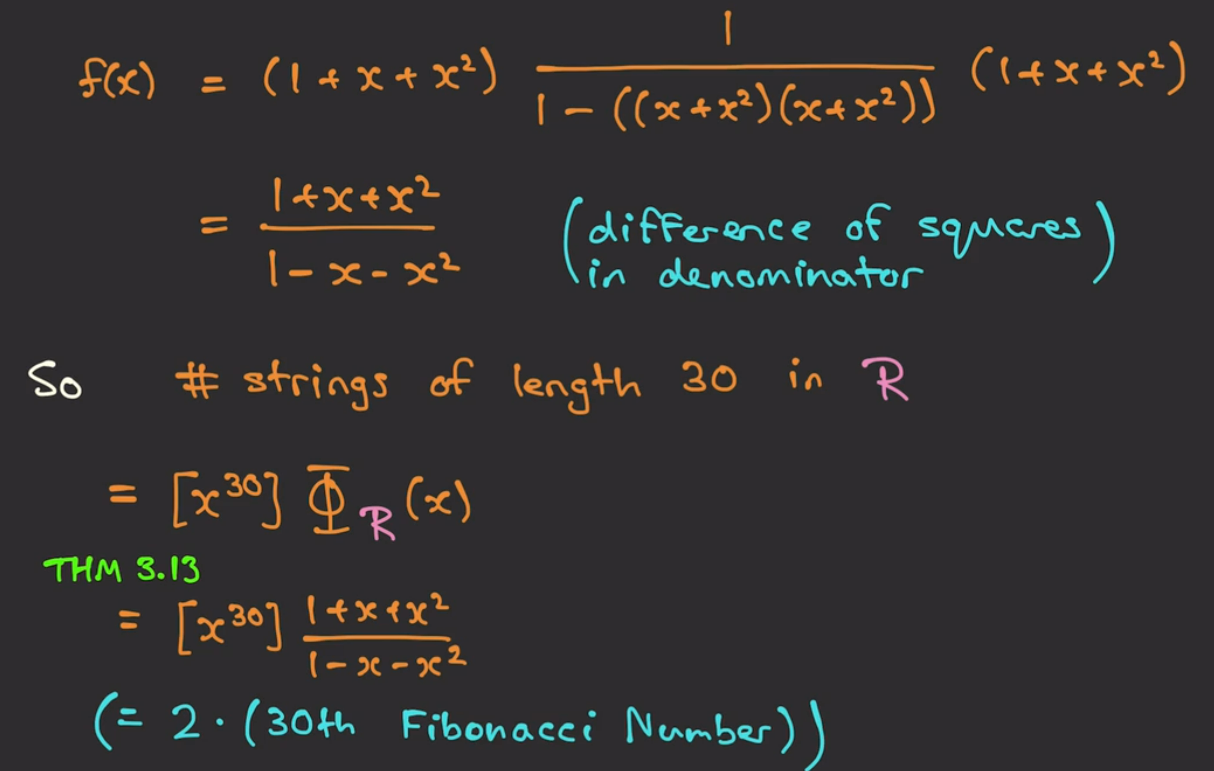 f(x) = (1 + x + x²) 1/(1 - ((x+x²)(x+x²))) (1+x+x²)
= (1+x+x²)/(1-x-x²) (difference of squares in denominator)
So # strings of length 30 in R
= [x³⁰] Φ_R(x)
THM 3.13
= [x³⁰] (1+x+x²)/(1-x-x²)
(= 2·(30th Fibonacci Number))